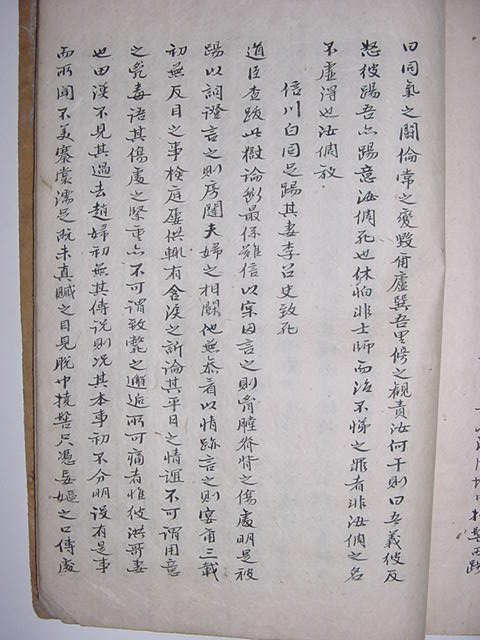 曰同氣之鬪倫常之變毁甭虛巽吾里修之觀責汝何干則曰吾義彼反
怒彼踢吾亦踢意汝倜死也休怕非士師而治不悌之罪者非汝倜之名
不虛得也汝倜放
信川白同足踢其妻李召史致死
道臣查跋此獄論斷最係難信以宲因言之則脅腫脊背之傷處明是被
踢以詞證言之則房闥夫婦之相鬪他無參看以情跡言之則宲甭三載
初無反目之事檢庭屢供輒有含淚之訴論其平日之情誼不可謂用意
之兇毒語其傷處之緊重亦不可謂致斃之邂逅所可痛者惟彼洪哥妻
也田漢不見其過去趙婦初無其傳說則况其本事初不分明設有是事
而所聞不美褰裳濡足旣未真贓之目見脫巾挽髻只憑長嫗之口傳處